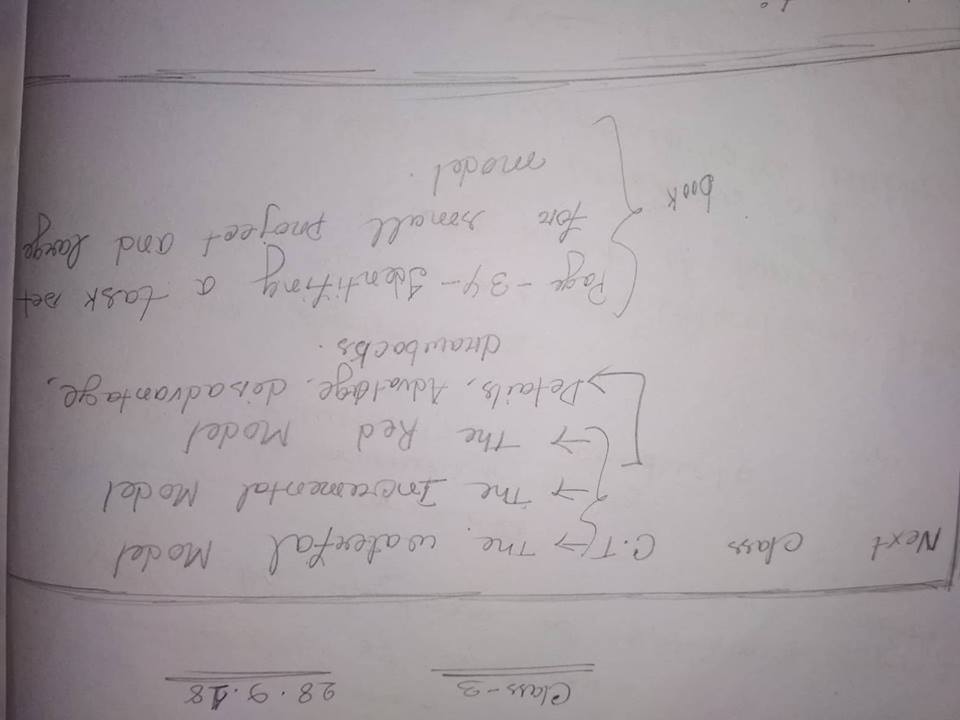 Class-3 28.9.18
Next class C.T → The waterfal Model
→ The Incremental Model
→ The Red Model
→ Details, Advatage, disadvantage,
drawbacks.
Page -34- Identifing a task set
book for small project and large
model.